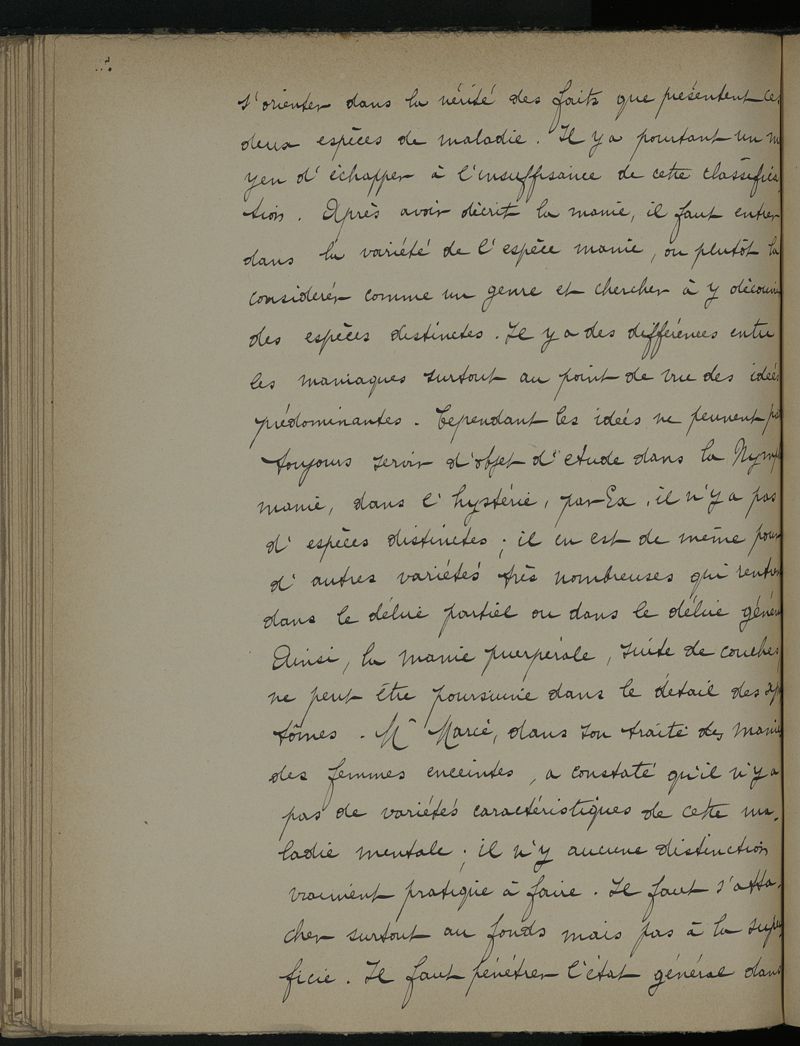 s'orienter dans la vérité des faits que présentent ces
deux espèces de maladie. Il y a pourtant un m
yen d'échapper à l'insuffisance de cette classifica
tion. Après avoir décrit la manie, il faut entrer
dans la variété de l'espèce manie, ou plutôt la
considerér comme un genre et chercher à y découvri
des espèces distinctes. Il y a des différences entre
les maniaques surtout au point de vue des ideés
prédominantes. Cependant les ideés ne peuvent pa
toujours servir d'objet d'etude dans la Nymph
manie, dans l'hystérie, par Ex. il n'y a pas
d'espèces distinctes; il en est de même pour
d'autres variétés très nombreuses qui rentren
dans le délire partiel ou dans le délire génér
Ainsi, la manie puerpérale, suite de couches
ne peut être poursuivie dans le détail des symp
tômes. Mr Marcé, dans son traité des manie
des femmes enceintes, a constaté qu'il n'y a
pas de variétés caractéristiques de cette ma-
ladie mentale; il n'y aucune distinction
vraiment pratique à faire. Il faut s'atta-
cher surtout au fonds mais pas à la super
ficie. Il faut pénétrer l'état général dans